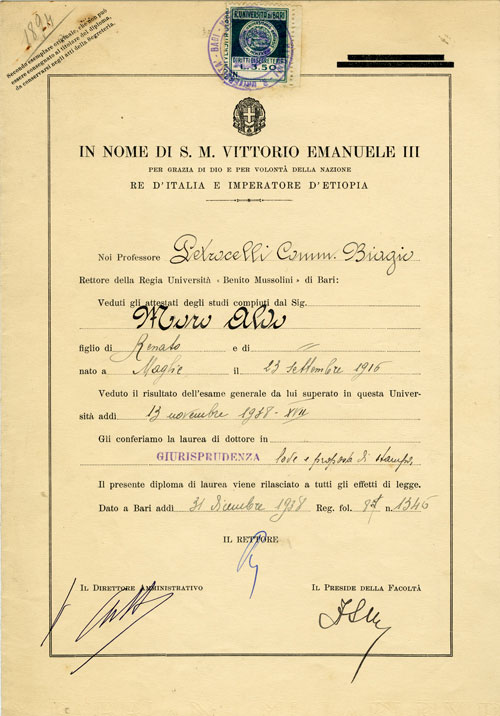 1894
Secondo esemplare originale, che non può
essere consegnato al titolare del diploma,
da conservarsi negli atti della Segreteria.
R. UNIVERSITÀ DI BARI
DIRITTI DI SEGRETERIA
L. 3.50
IN NOME DI S. M. VITTORIO EMANUELE III
PER GRAZIA DI DIO E PER VOLONTÀ DELLA NAZIONE
RE D'ITALIA E IMPERATORE D'ETIOPIA
Noi Professore Petrocelli Comm. Biagio
Rettore della Regia Università « Benito Mussolini » di Bari:
Veduti gli attestati degli studi compiuti dal Sig.
Moro Aldo
figlio di Renato e di //
nato a Maglie il 23 settembre 1916
Veduto il risultato dell'esame generale da lui superato in questa Univer-
sità addì 13 novembre 1938 - XVII
Gli conferiamo la laurea di dottore in
GIURISPRUDENZA lode e proposta di stampa.
Il presente diploma di laurea viene rilasciato a tutti gli effetti di legge.
Dato a Bari addì 31 dicembre 1938 Reg. fol. n. 1346
IL RETTORE
IL DIRETTORE AMMINISTRATIVO IL PRESIDE DELLA FACOLTÀ